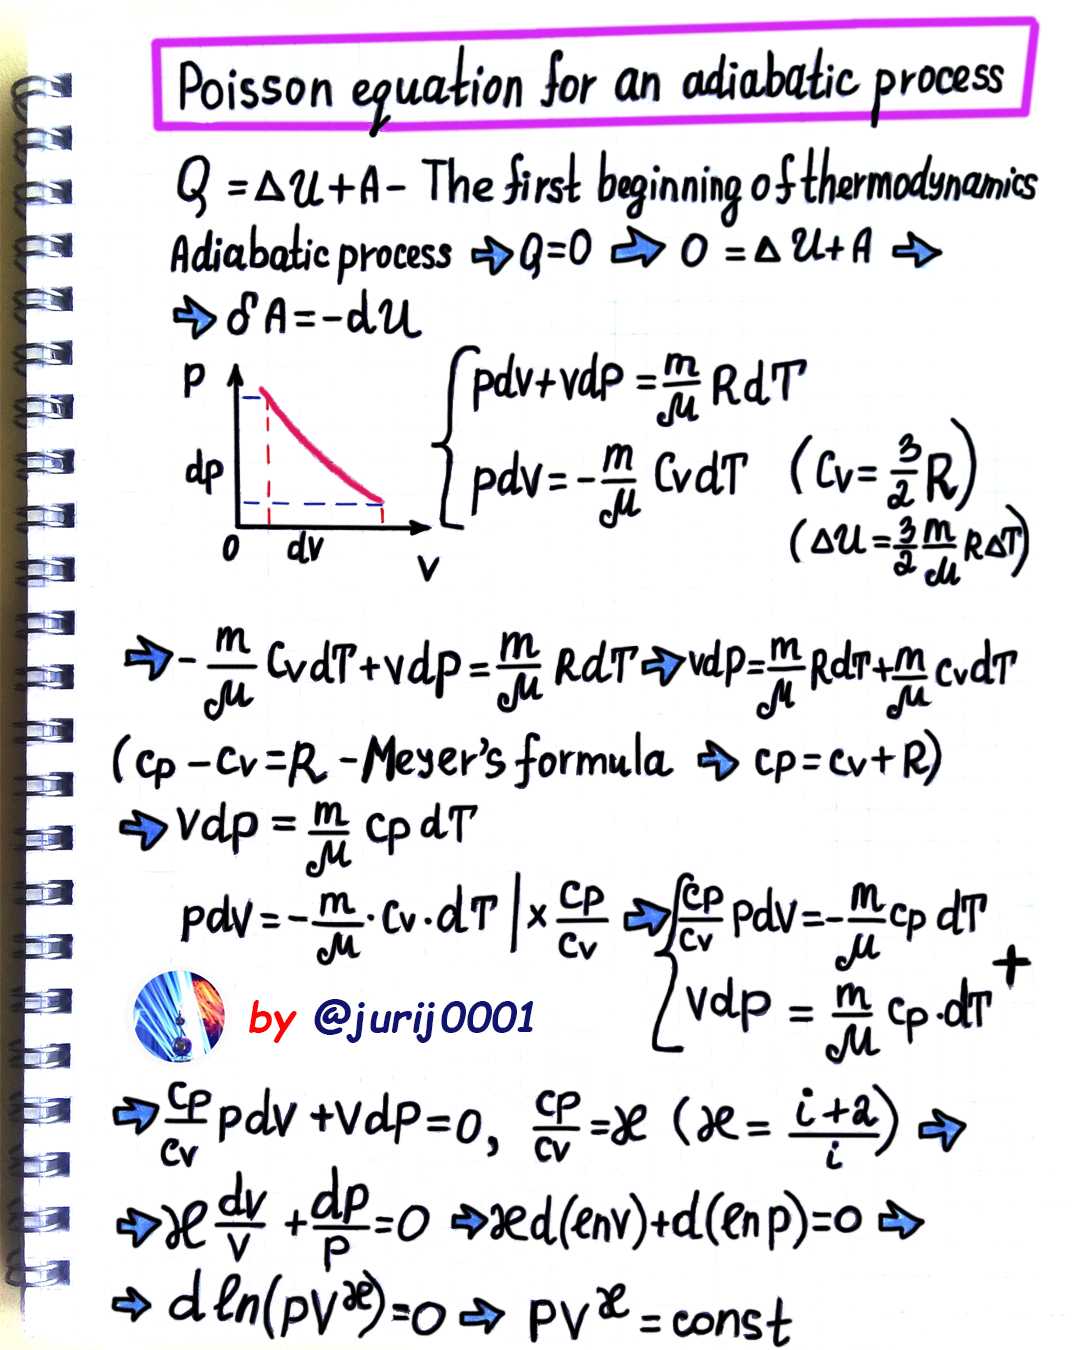 Poisson equation for an adiabatic process
Q = ΔU + A - The first beginning of thermodynamics
Adiabatic process ⇒ Q=0 ⇒ 0 = ΔU + A ⇒
⇒ δA = -dU
pdv + vdp = m/μ RdT
pdv = - m/μ CvdT (Cv = 3/2 R)
(ΔU = 3/2 m/μ RΔT)
P
dp
0 dv V
⇒ - m/μ CvdT + vdp = m/μ RdT ⇒ vdp = m/μ RdT + m/μ CvdT
(cp - cv = R - Meyer's formula ⇒ cp = cv + R)
⇒ Vdp = m/μ cp dT
pdV = - m/μ · Cv · dT | × cp/cv ⇒ cp/cv pdV = - m/μ cp dT
Vdp = m/μ cp · dT +
by @jurij0001
⇒ cp/cv pdV + Vdp = 0, cp/cv = æ (æ = i+2/i) ⇒
⇒ æ dv/v + dp/p = 0 ⇒ æd(lnv) + d(lnp) = 0 ⇒
⇒ d ln(pV^æ) = 0 ⇒ PV^æ = const